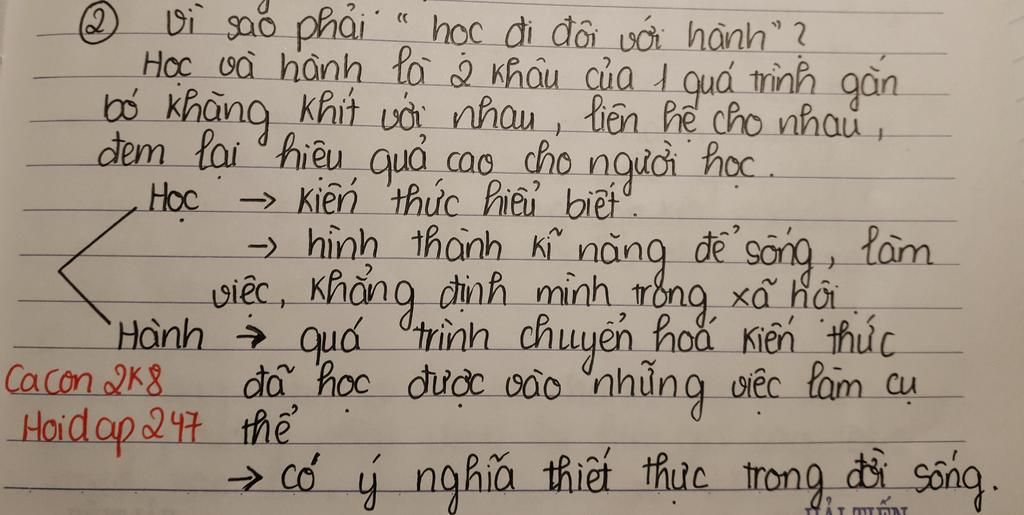 ② Vì sao phải "học đi đôi với hành"?
Học và hành là 2 khâu của 1 quá trình gắn
bó khăng khít với nhau, liên hệ cho nhau,
đem lại hiệu quả cao cho người học.
Học → kiến thức hiểu biết.
→ hình thành kĩ năng để sống, làm
việc, khẳng định mình trong xã hội.
Hành → quá trình chuyển hoá kiến thức
đã học được vào những việc làm cụ
thể
→ có ý nghĩa thiết thực trong đời sống.
Cacon2K8
Hoidap247
HẢI TIẾN